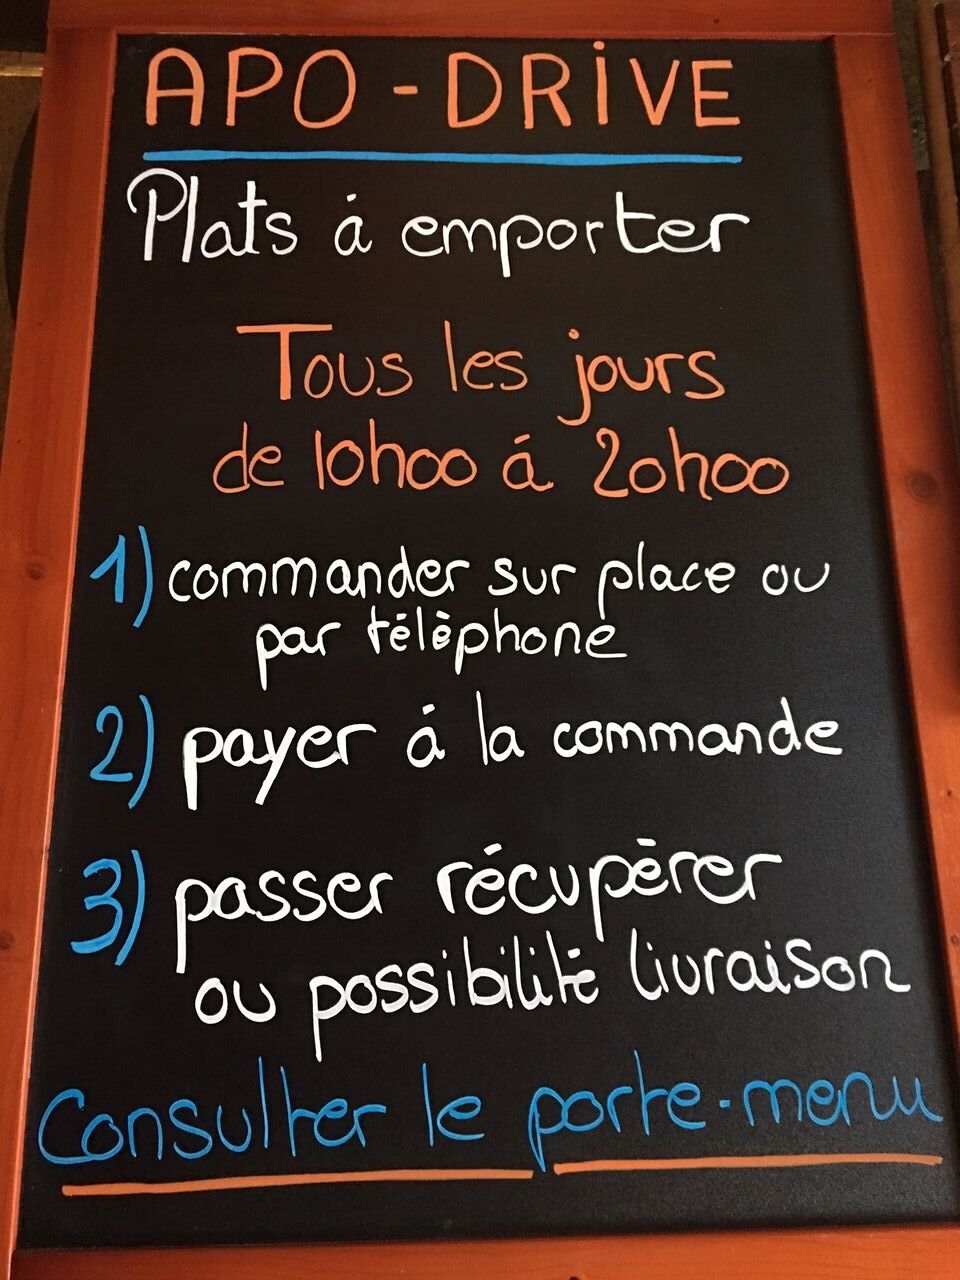 APO-DRiVE
Plats á emporter
Tous les jours
de 10h00 á 20h00
1) commander sur place ou
par télèphone
2) payer á la commande
3) passer récupèrer
ou possibilité livraison
Consulter le porte-menu